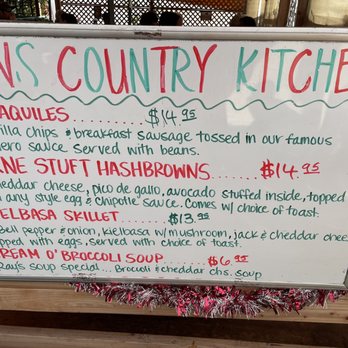 N.S COUNTRY KITCHE
AQUILES ........ $14.95
illa chips & breakfast sausage tossed in our famous
ero sauce. Served with beans.
NE STUFT HASHBROWNS ........ $14.95
heddar cheese, pico de gallo, avocado stuffed inside, topped
any style egg & chipotle sauce. Comes w/ choice of toast.
ELBASA SKILLET ........ $13.95
Bell pepper & onion, kielbasa w/ mushroom, jack & cheddar chee
pped with eggs. Served with choice of toast.
REAM O' BROCCOLI SOUP ........ $6.95
Ray's soup special... Brocoli & cheddar chs. soup